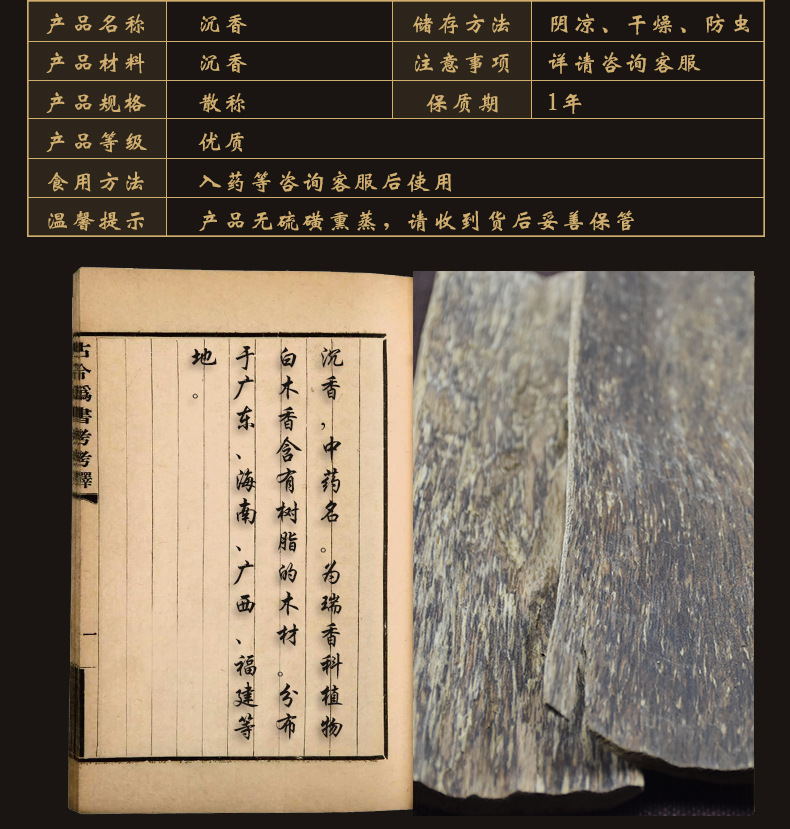 产品名称 沉香 储存方法 阴凉、干燥、防虫
产品材料 沉香 注意事项 详请咨询客服
产品规格 散称 保质期 1年
产品等级 优质
食用方法 入药等咨询客服后使用
温馨提示 产品无硫磺熏蒸，请收到货后妥善保管
沉香，中药名。为瑞香科植物
白木香含有树脂的木材。分布
于广东、海南、广西、福建等
地。
書考考釋
一